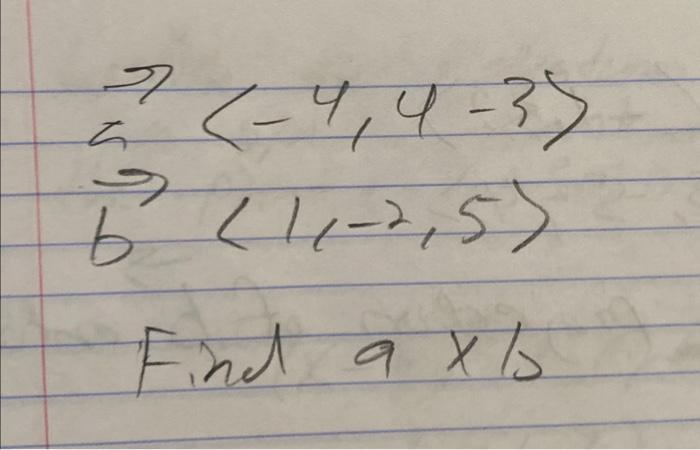 a⃗ <-4, 4 -3>
b⃗ <1, -2, 5>
Find a x b